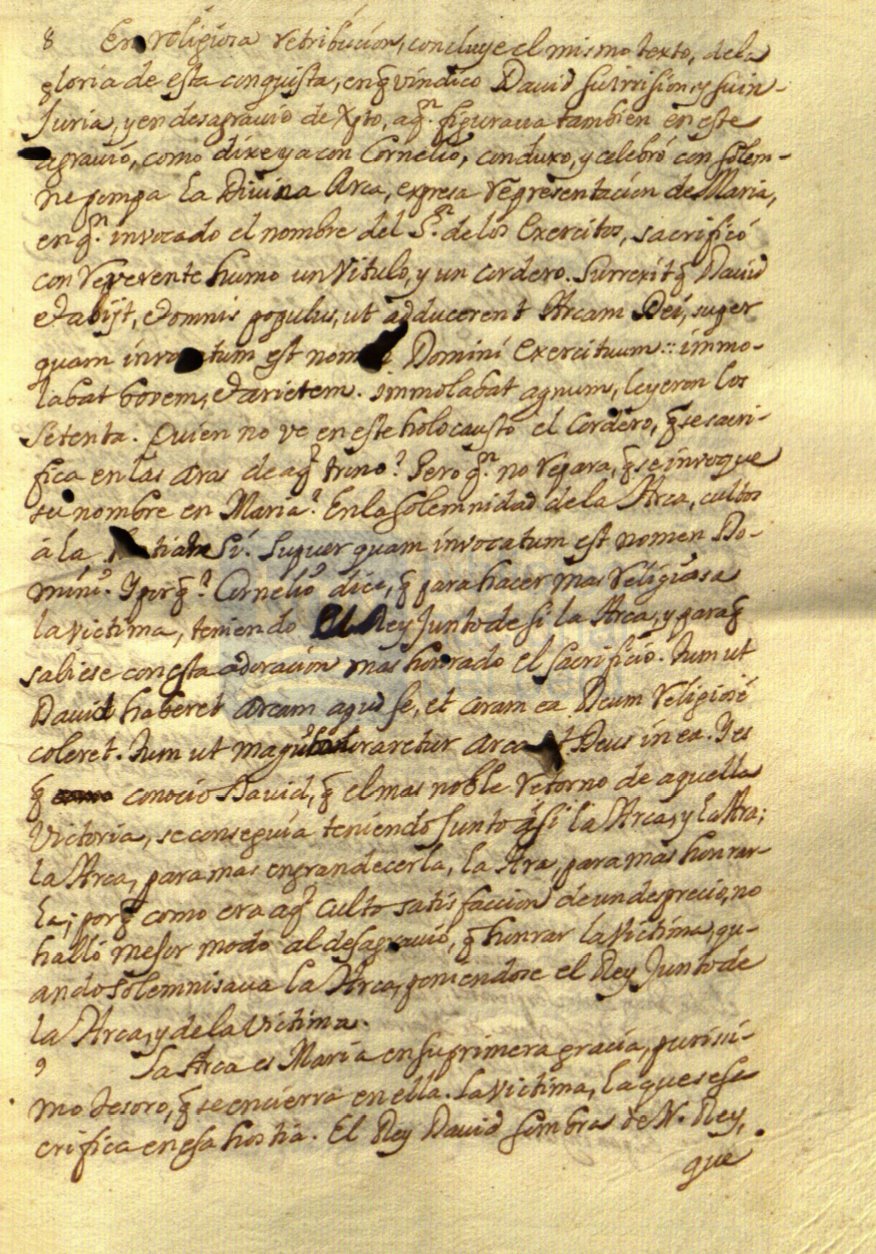 8 En religiosa retribucion, concluye el mismo texto, dela
gloria de esta conquista, en q̃ vindico David su irrision, y su in-
juria, y en desagravio de Xpto, a qn. figurava tambien en este
agravio, como dixe ya con Cornelio, conduxo, y celebró con solem-
ne pompa la Divina Arca, expresa representacion de Maria,
en qn. invocado el nombre del Sr. de los Exercitos, sacrificó
con reverente humo un Vitulo, y un cordero. Surrexit q̃ David
et abijt, et omnis populus, ut adducerent Arcam Dei, super
quam invo tum est nom Domini Exercituum :: immo-
labat bovem, et arietem. Immolabat agnum, leyeron los
Setenta. Quien no ve en este holocausto el Cordero, q̃ se sacri-
fica en las aras de aql trino? Pero qn. no repara, q̃ se invoque
su nombre en Maria? En la solemnidad de la Arca, cultos
á la Sí. Super quam invocatum est nomen Do-
mini. Y por q̃? Cornelio dice, q̃ para hacer mas religiosa
la victima, teniendo El Rey junto de si la Arca, y para q̃
sabiese con esta adoracion mas honrado el sacrificio. Tum ut
David haberet arcam apud se, et coram ea Deum religiosé
coleret. Tum ut magis honoraretur arca et Deus in ea. Y es
q̃ conocio David, q̃ el mas noble retorno de aquella
Victoria, se conseguia teniendo junto á si la Arca, y la Ara;
la Arca, para mas engrandecerla, la Ara, para mas honrar-
la; por q̃ como era aql culto satisfaccion de un desprecio, no
halló mejor modo al desagravio, q̃ honrar la victima, qu-
ando solemnisava la Arca, poniendose el Rey junto de
la Arca, y de la Victima.
9 La Arca es Maria en su primera gracia, purisi-
mo tesoro, q̃ se encierra en ella. La Victima, la que se sa-
crifica en esa hostia. El Rey David sombra de N. Rey,
que